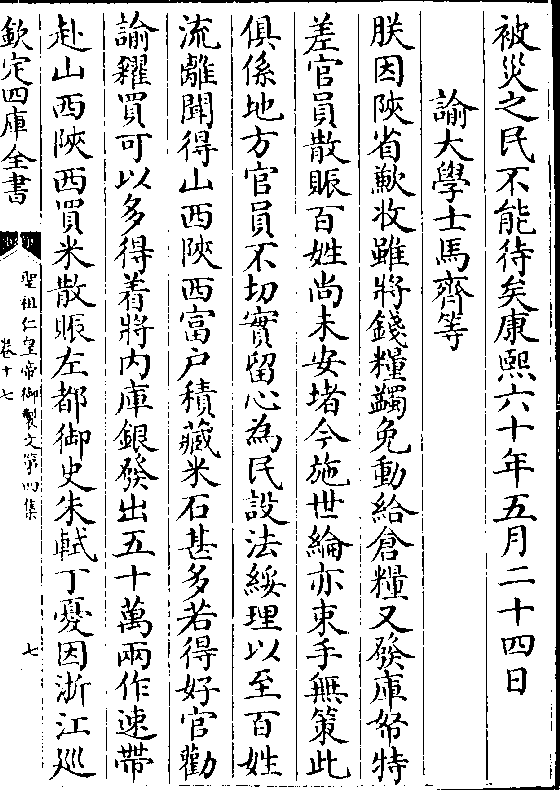 被災之民不能待矣康熙六十年五月二十四日
諭大學士馬齊等
朕因陝省歉收雖將錢糧蠲免動給倉糧又發庫帑特
差官員散賑百姓尚未安堵今施世綸亦束手無策此
俱係地方官員不切實留心為民設法綏理以至百姓
流離聞得山西陝西富户積藏米石甚多若得好官勸
諭糴買可以多得着將內庫銀發出五十萬兩作速帶
赴山西陝西買米散賑左都御史朱軾丁憂因浙江巡
欽定四庫全書
聖祖仁皇帝御製文第四集
卷十七
七